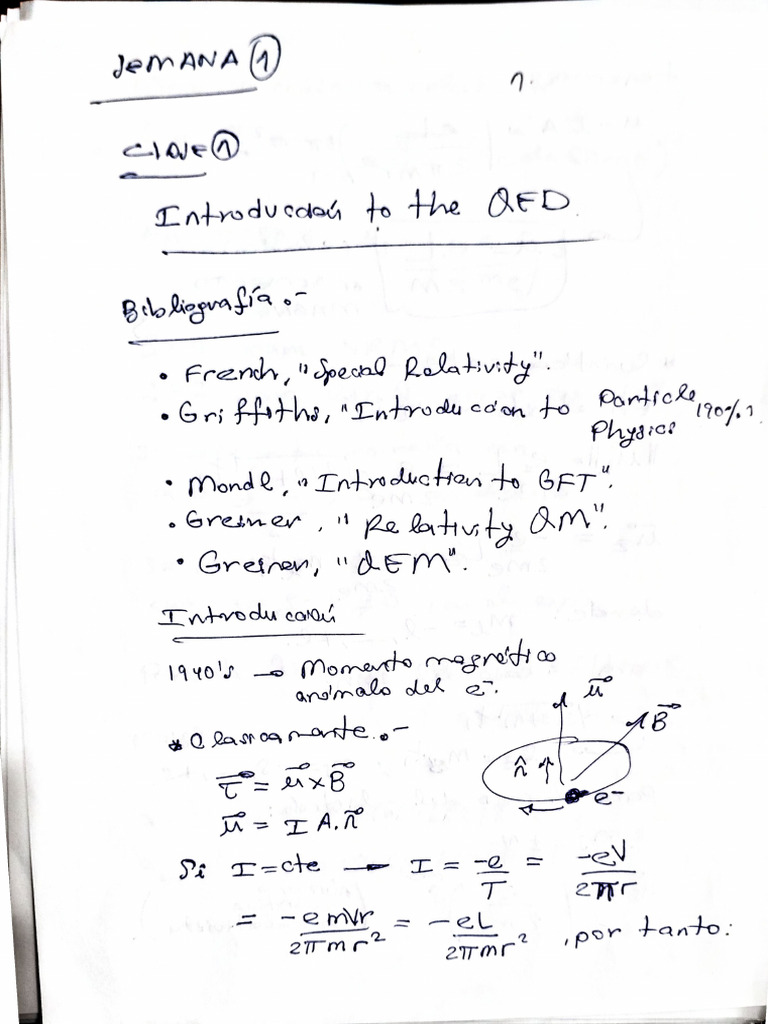 SEMANA ①
1.
CLASE ①
Introducción to the QED.
Bibliografía.-
• French, "Special Relativity".
• Griffiths, "Introducción to Particle Physics
• Mondl, "Introduction to QFT".
• Greiner, "Relativity QM".
• Greiner, "QEM".
Introducción
1940's → Momento magnético
anómalo del e⁻.
* Clasicamente.-
μ⃗
B⃗
n̂ ↑
e⁻
τ⃗ = μ⃗ × B⃗
μ⃗ = I A.n⃗
Si I = cte → I = -e/T = -eV/2πr
= -emVr/2πmr² = -eL/2πmr², por tanto: